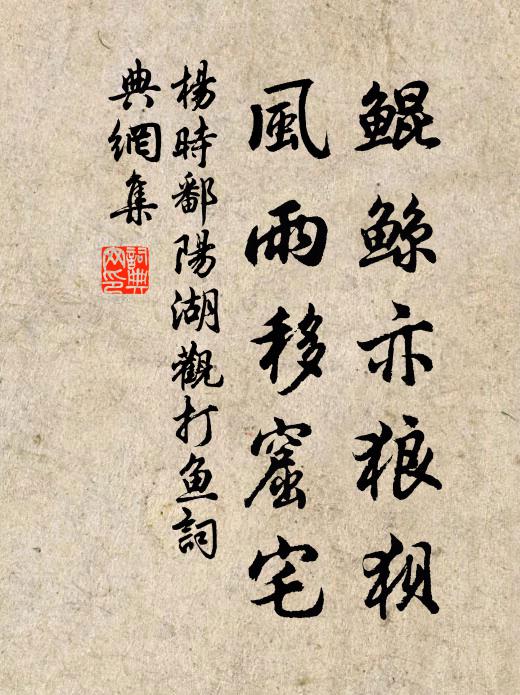 鯤鯨亦狼狽
風雨移窟宅
楊時鄱陽湖觀打魚詞
典網集
詞典